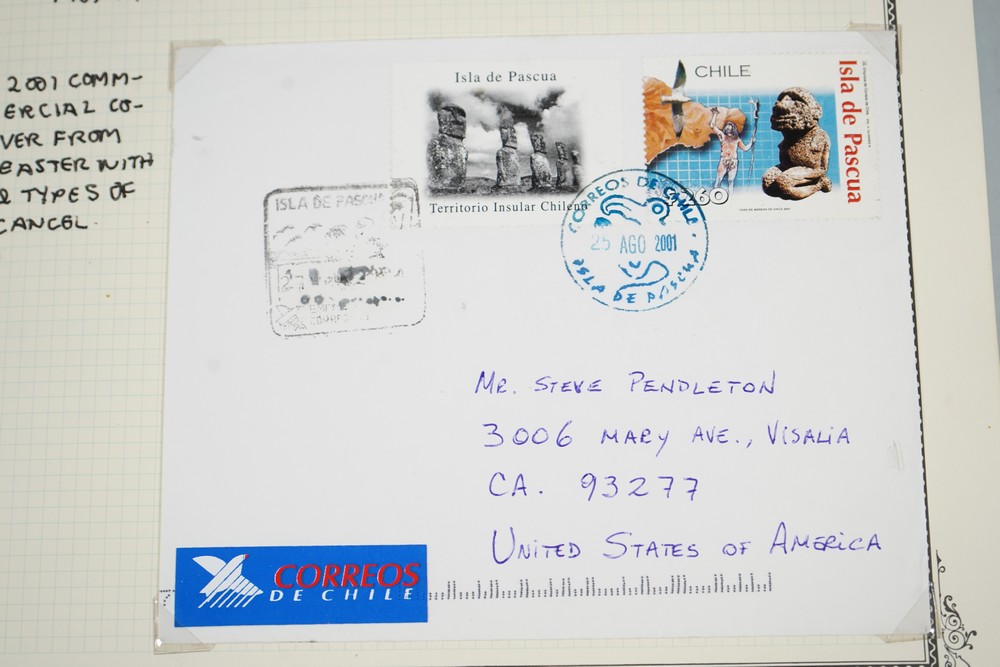 2001 COMM-
ERCIAL CO-
VER FROM
EASTER WITH
2 TYPES OF
CANCEL.
Isla de Pascua
Territorio Insular Chileno
CHILE
Isla de Pascua
260
ISLA DE PASCUA
CORREOS DE CHILE
25 AGO 2001
ISLA DE PASCUA
MR. STEVE PENDLETON
3006 MARY AVE., VISALIA
CA. 93277
UNITED STATES OF AMERICA
CORREOS
DE CHILE